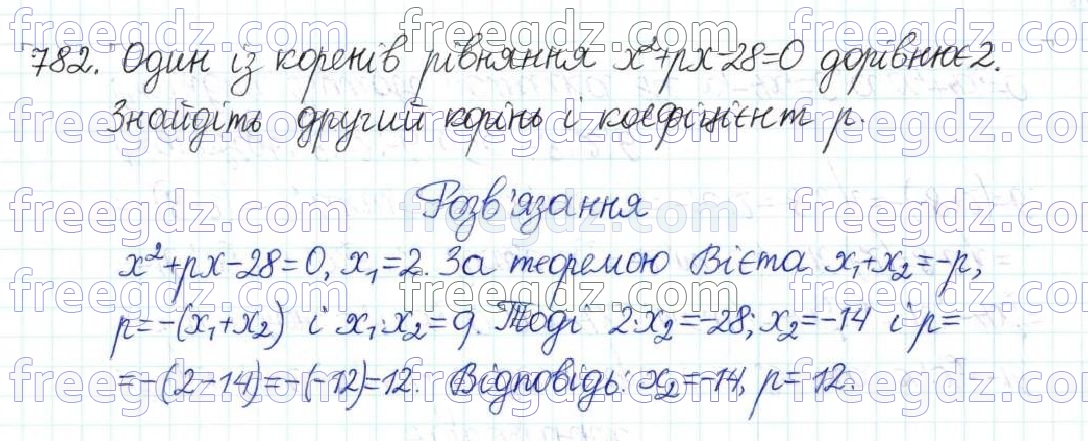 782. Один із коренів рівняння x²+px-28=0 дорівнює 2.
Знайдіть другий корінь і коефіцієнт p.
Розв'язання
x²+px-28=0, x₁=2. За теоремою Вієта x₁+x₂=-p,
p=-(x₁+x₂) і x₁·x₂=q. Тоді 2·x₂=-28; x₂=-14 і p=
=-(2-14)=-(-12)=12. Відповідь: x₂=-14, p=12.
freegdz.com freegdz.com freegdz.com
freegdz.com freegdz.com freegdz.com
freegdz.com freegdz.com freegdz.com
freegdz.com freegdz.com freegdz.com
freegdz.com freegdz.com freegdz.com